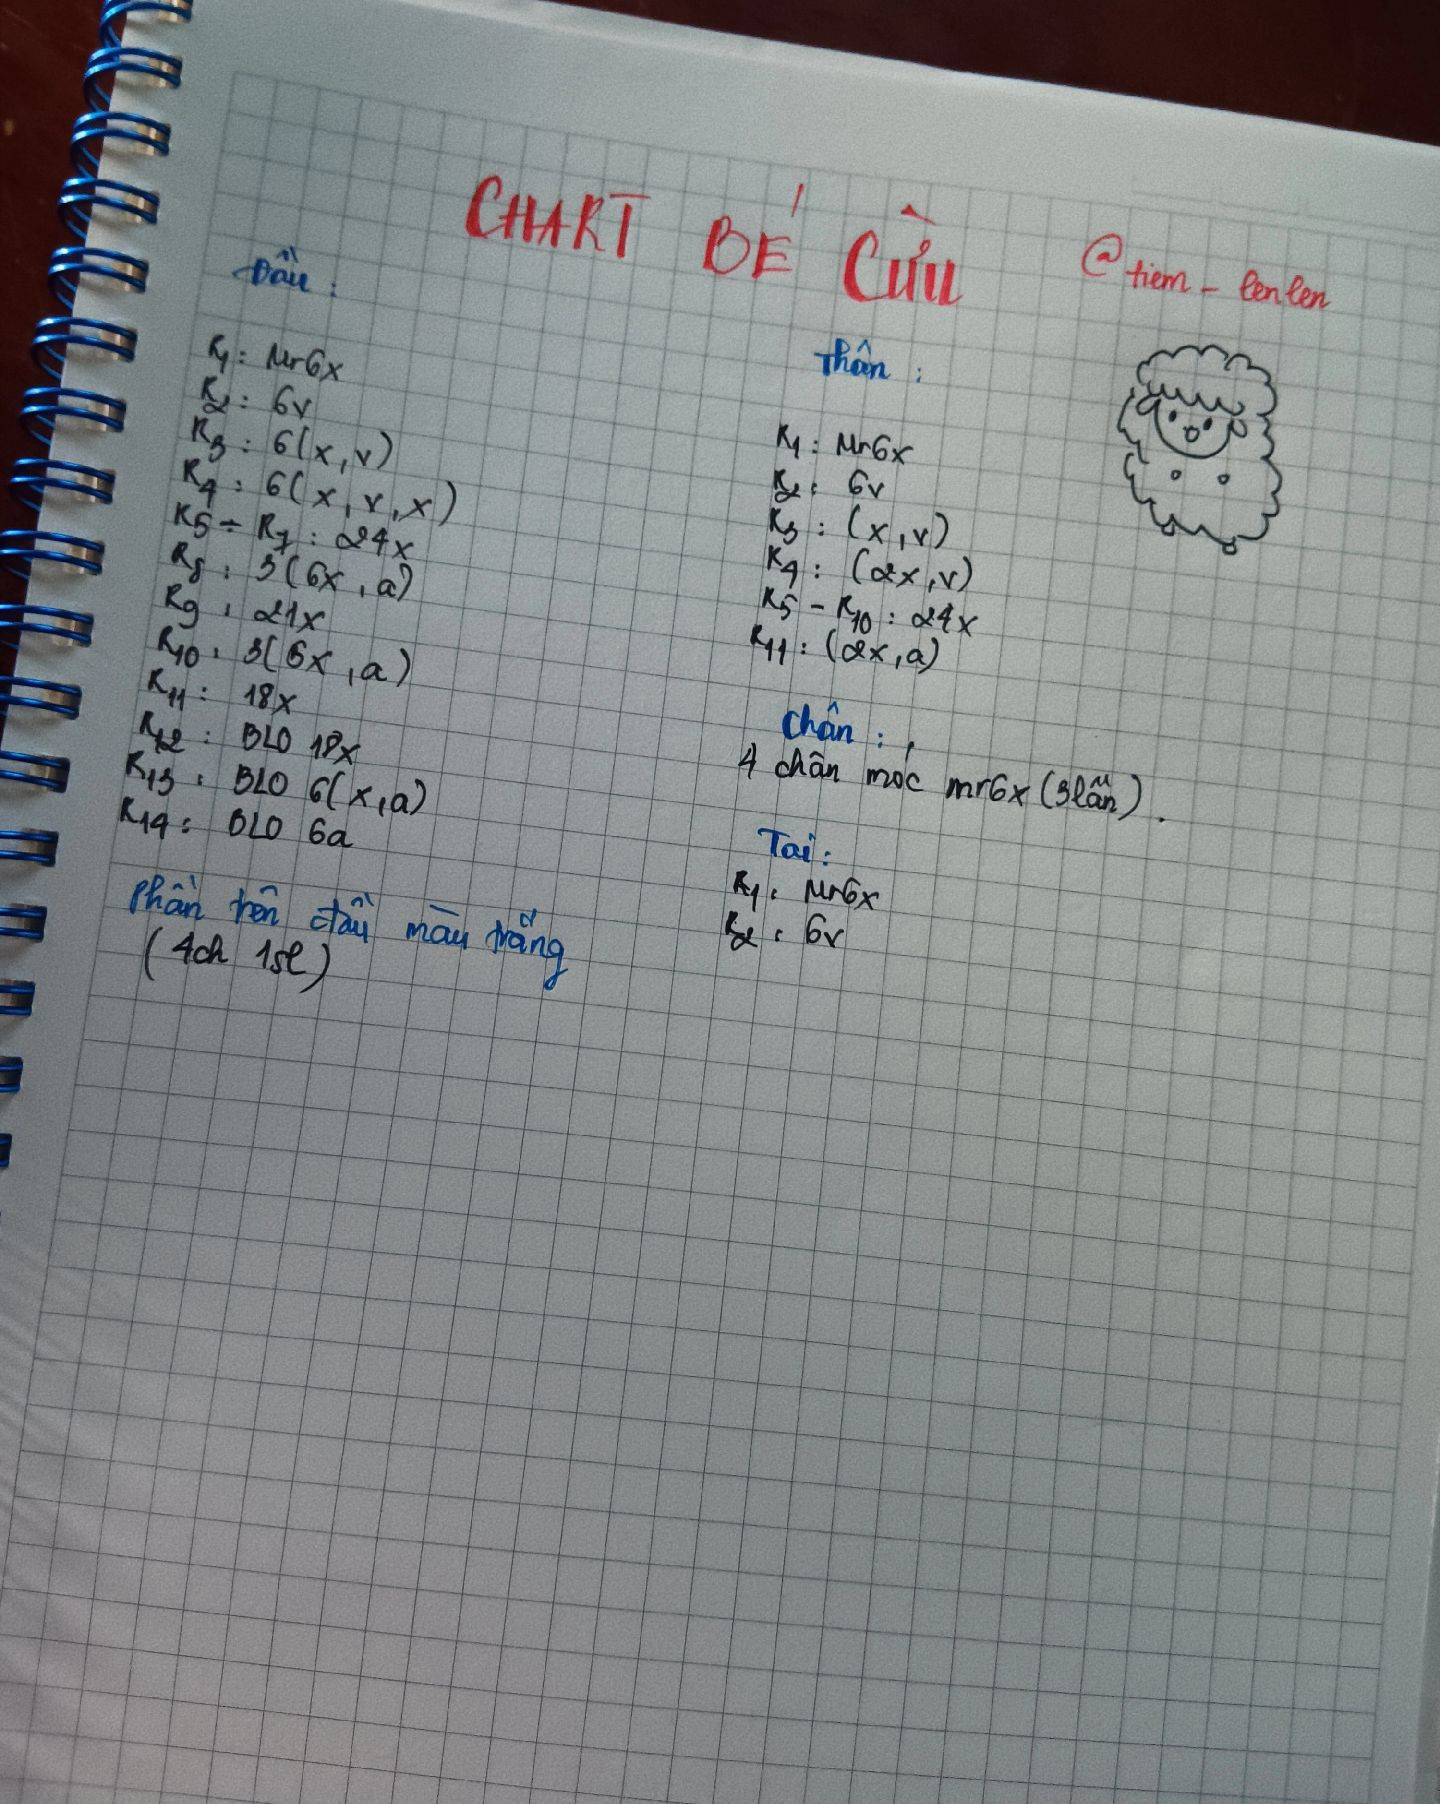 CHART BÉ CỪU
@tiem_lenlen
Đầu:
R1: Mr6x
R2: 6v
R3: 6(x,v)
R4: 6(x,v,x)
R5 ÷ R7: 24x
R8: 3(6x,a)
R9: 21x
R10: 3(5x,a)
R11: 18x
R12: BLO 18x
R13: BLO 6(x,a)
R14: BLO 6a
Phần trên đầu màu trắng
(4ch 1sl)
Thân:
R1: Mr6x
R2: 6v
R3: (x,v)
R4: (2x,v)
R5 - R10: 24x
R11: (2x,a)
Chân:
4 chân móc mr6x (3lần).
Tai:
R1: Mr6x
R2: 6v